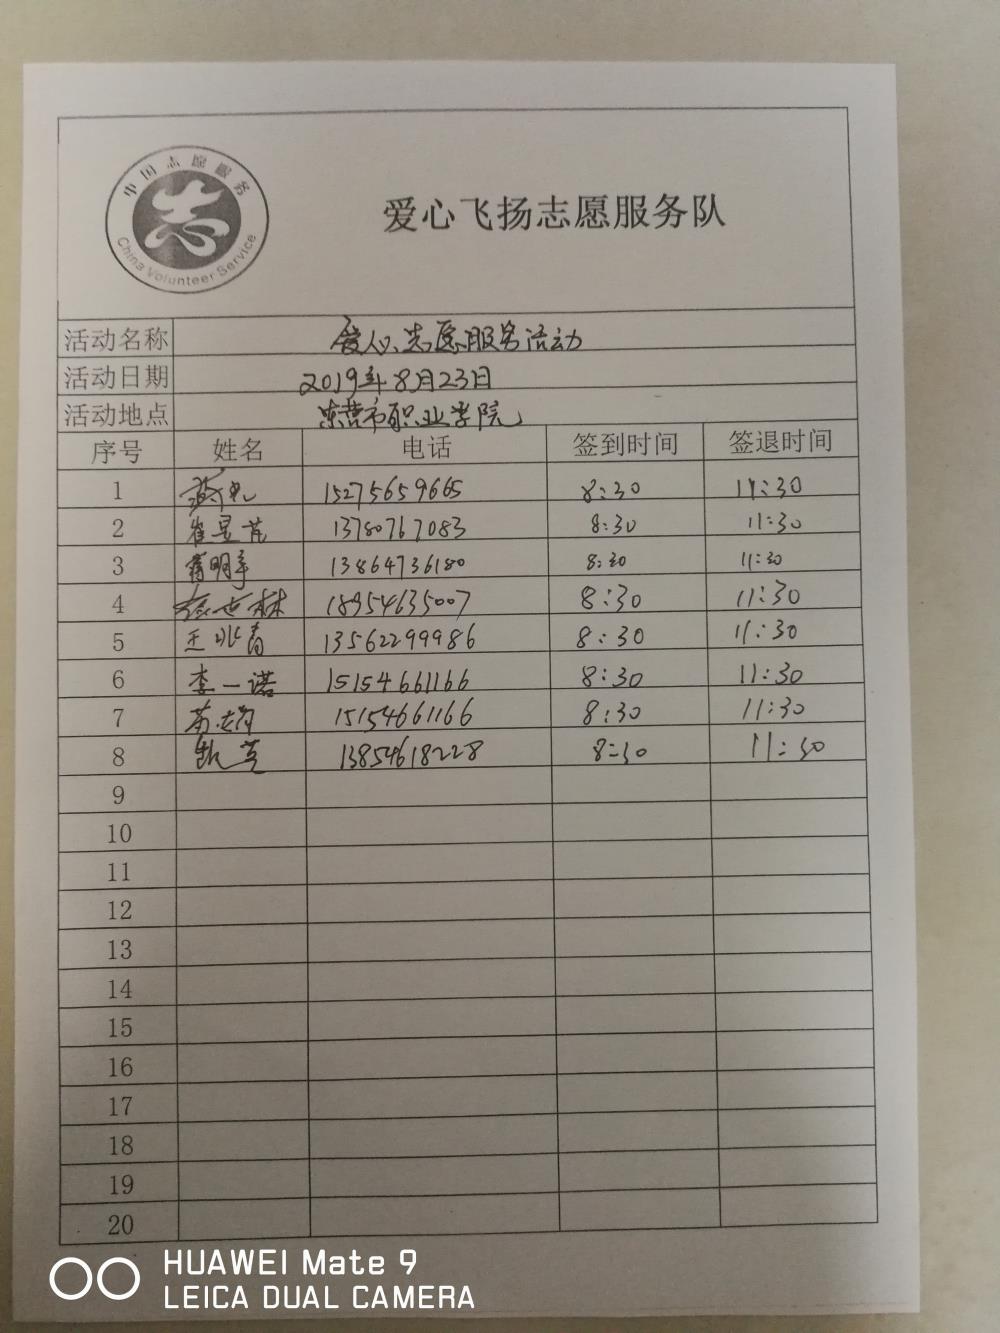 中国志愿服务
China Volunteer Service
爱心飞扬志愿服务队
活动名称 爱心志愿服务活动
活动日期 2019年8月23日
活动地点 东营市职业学院
序号 姓名 电话 签到时间 签退时间
1 15275659665 8:30 11:30
2 崔昱芃 13780767083 8:30 11:30
3 13864736180 8:30 11:30
4 18954635007 8:30 11:30
5 王兆春 13562299986 8:30 11:30
6 李一诺 15154661166 8:30 11:30
7 15154661166 8:30 11:30
8 13854618228 8:30 11:30
9
10
11
12
13
14
15
16
17
18
19
20
HUAWEI Mate 9
LEICA DUAL CAMERA